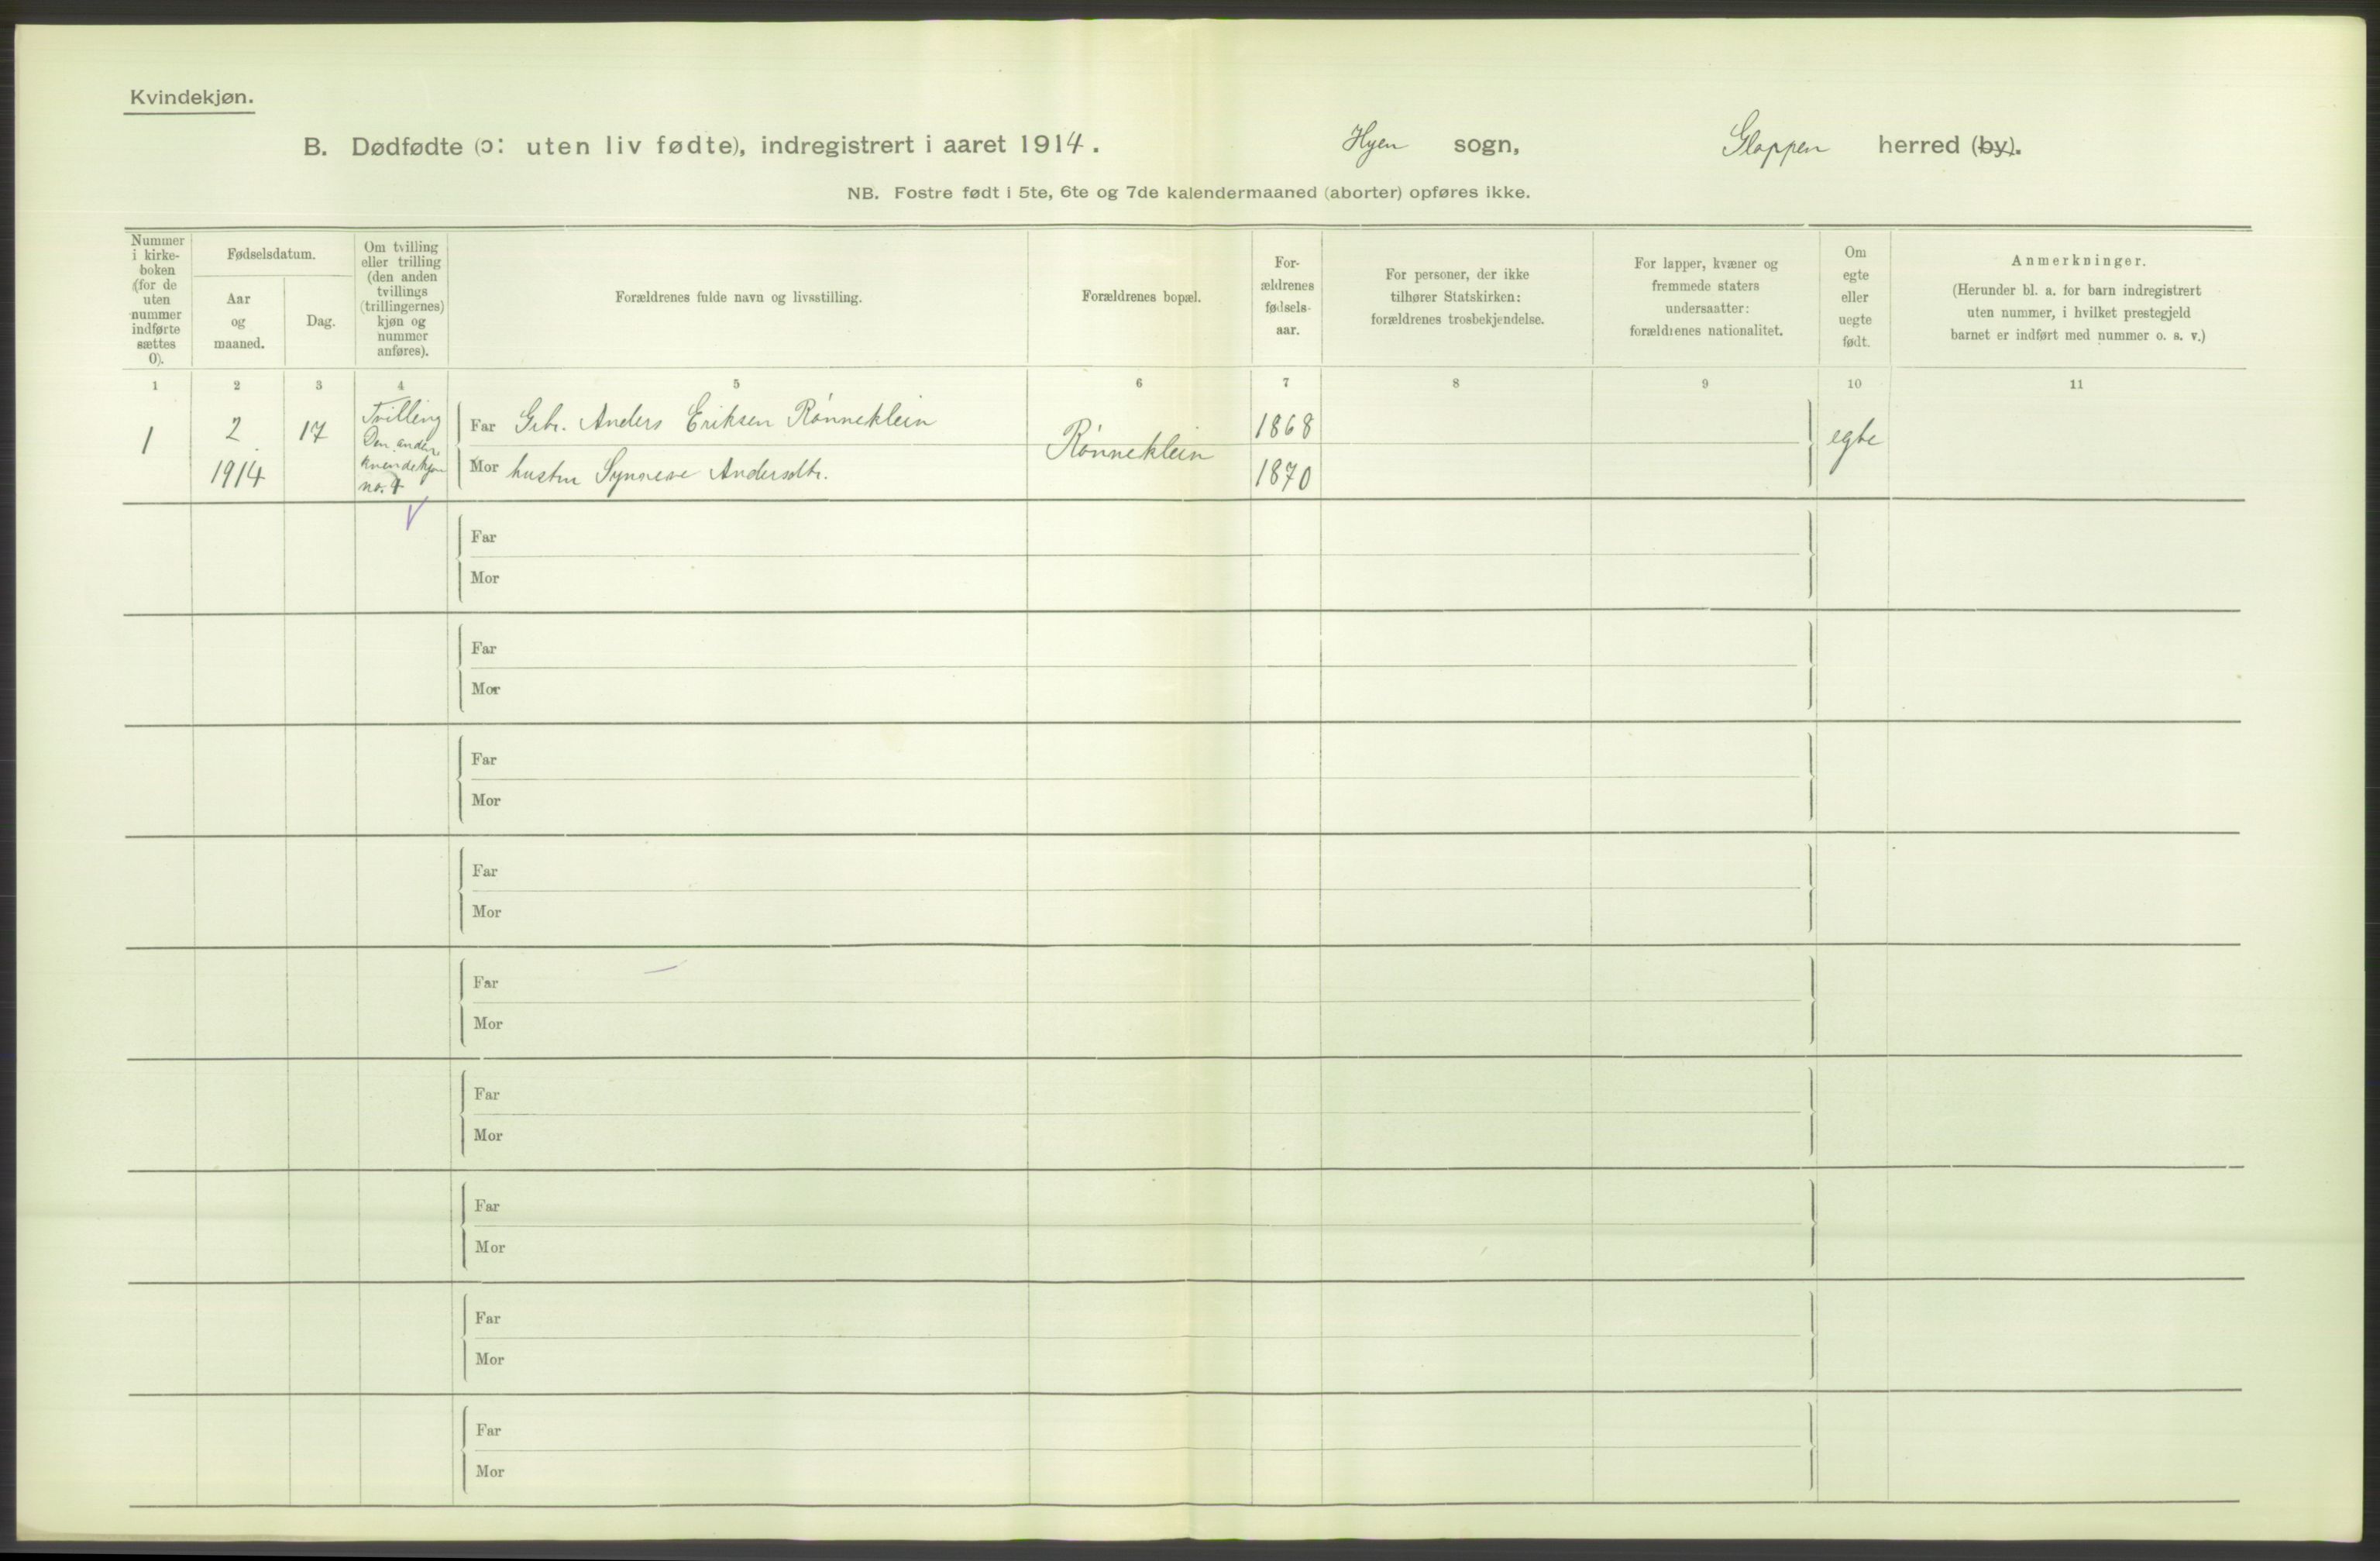 Kvindekjøn.
B. Dødfødte (ɔ: uten liv fødte), indregistrert i aaret 1914. Hyen sogn, Gloppen herred (by).
NB. Fostre født i 5te, 6te og 7de kalendermaaned (aborter) opføres ikke.
Nummer
i kirke-
boken
(for de
uten
nummer
indførte
sættes
0).
Fødselsdatum.
Aar
og
maaned.
Dag.
Om tvilling
eller trilling
(den anden
tvillings
(trillingernes)
kjøn og
nummer
anføres).
Forældrenes fulde navn og livsstilling.
Forældrenes bopæl.
For-
ældrenes
fødsels-
aar.
For personer, der ikke
tilhører Statskirken:
forældrenes trosbekjendelse.
For lapper, kvæner og
fremmede staters
undersaatter:
forældrenes nationalitet.
Om
egte
eller
uegte
født.
Anmerkninger.
(Herunder bl. a. for barn indregistrert
uten nummer, i hvilket prestegjeld
barnet er indført med nummer o. s. v.)
1 2 3 4 5 6 7 8 9 10 11
1
2
1914
17
Tvilling
Den anden
kvindekjøn
no. 9
Far Grbr. Anders Eriksen Rønneklein
Mor hustru Synneve Andersdtr.
Rønneklein
1868
1870
egte
Far
Mor
Far
Mor
Far
Mor
Far
Mor
Far
Mor
Far
Mor
Far
Mor
Far
Mor
Far
Mor